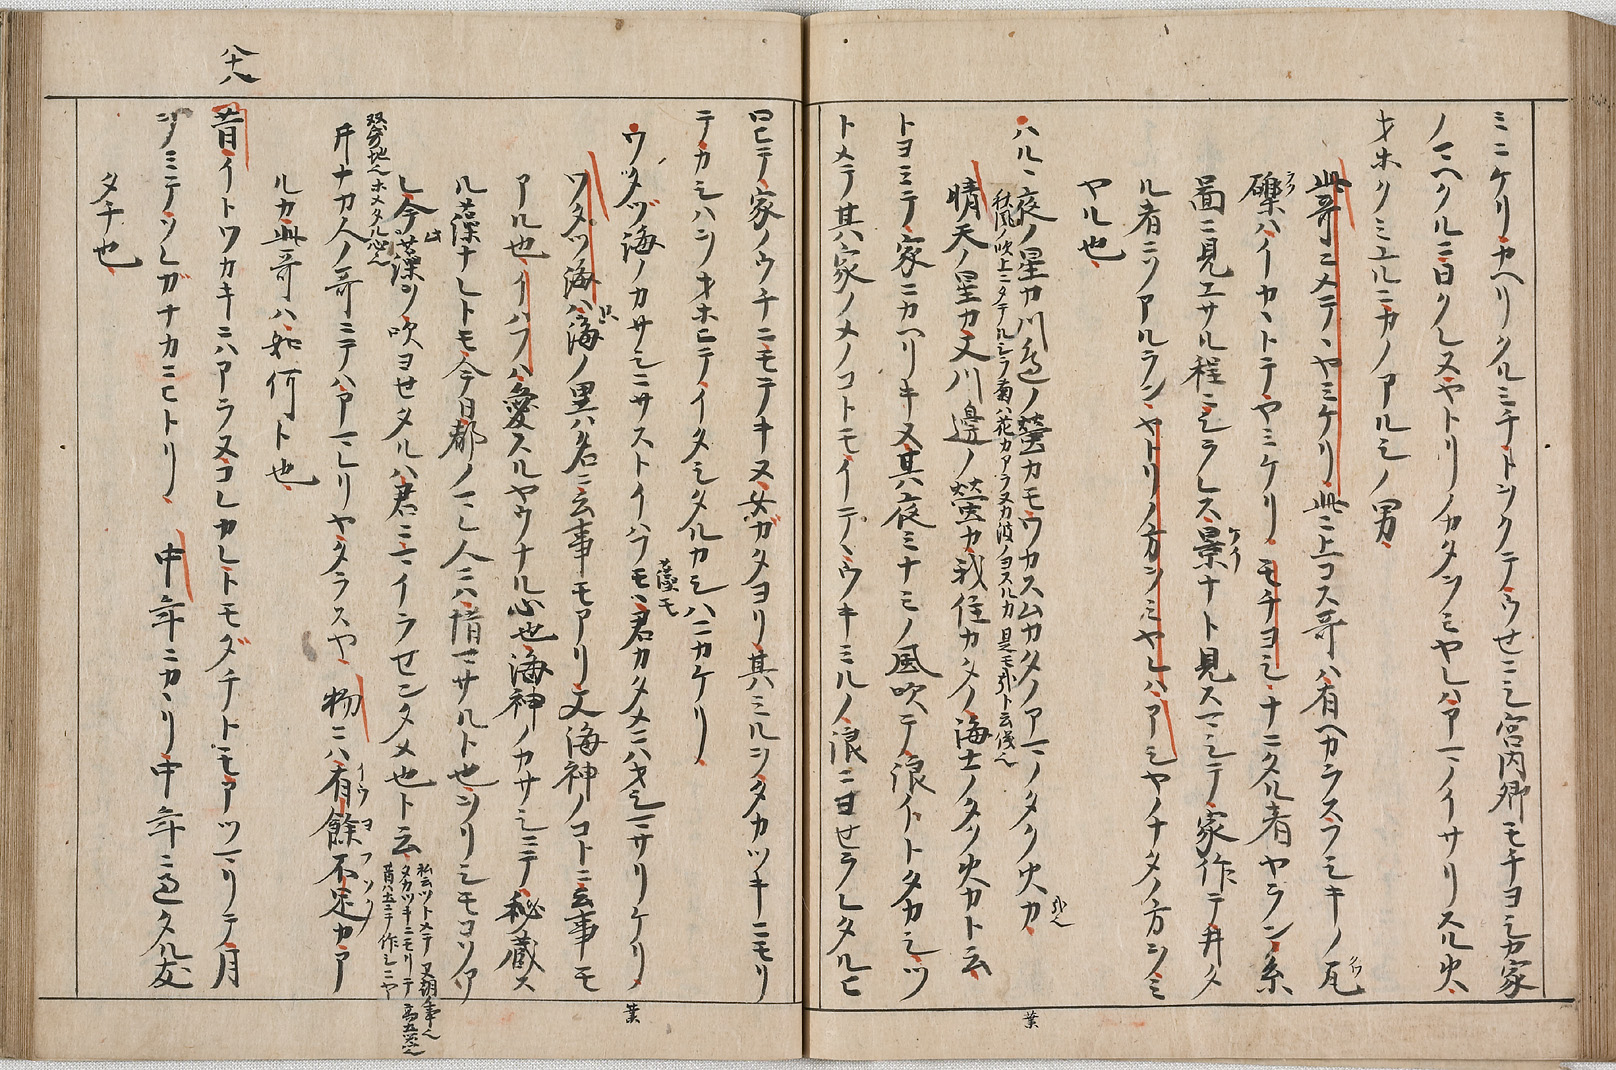 ミニケリカヘリクルミチトヲクテウせニシ宮内卿モチヨシカ家
ノマヘクルニ日クレヌヤトリノカタヲミヤレハアマノイサリスル火
オホクミユルニカノアルシノ男
此哥ヨメテヤミケリ此ニ上コス哥ハ有ヘカラスフミキノ瓦
礫ハイカヽトテヤミケリモチヨシナニタル者ヤラン系
圖ニ見エサル程ニシラレス景ナト見スマシテ家作テ井タ
ル者ニソアルランヤトリノ方ヲミヤレハアシヤノナタノ方ヲミ
ヤル也
ハルヽ夜ノ星カ川邊ノ螢カモワカスムカタノアマノタク火カ
秋風ノ吹上ニタテルシラ菊ハ花カアラヌカ波ノヨスルカ 是モ
晴天ノ星カ又川邊ノ螢カ我住カタノ海士ノタク火カト云
トヨミテ家ニカヘリキヌ其夜ミナミノ風吹テ浪イトタカシツ
トメテ其家ノメノコトモイテヽウキミルノ浪ニヨせラレタルヒ
葉
ロヒテ家ノウチニモテキヌ女ガタヨリ其ミルヲタカツキニモリ
テカシハヲオホヒテイタシタルカシハニカケリ
ワタヅ海ノカサシニサストイハフモヽ君カタメニハオシマサリケリ
藻モ
ワタツ海ハ海ノ異名ニ云事モアリ又海神ノコトニ云事モ
アル也イハフハ愛スルヤウナル心也海神ノカサシニテ秘蔵ス
ル藻ナレトモ今日都ノマレ人ニハ惜マサルト也ヲリシモコソア
レ今藻ヲ吹ヨせタルハ君ニマイラせンタメ也ト云
双帋地ホメタル心
井ナカ人ノ哥ニテハアマレリヤタラスヤ 物ニハ有餘不足カア
イウヨフソク
ルカ此哥ハ如何ト也
八十八
昔イトワカキニハアラヌコレカレトモダチトモアツマリテ月
ヲミテソレガナカニヒトリ 中年ニカヽリ中年ニ過タル友
タチ也
葉